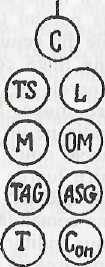 C
TS L
M OM
TAG ASG
T Con